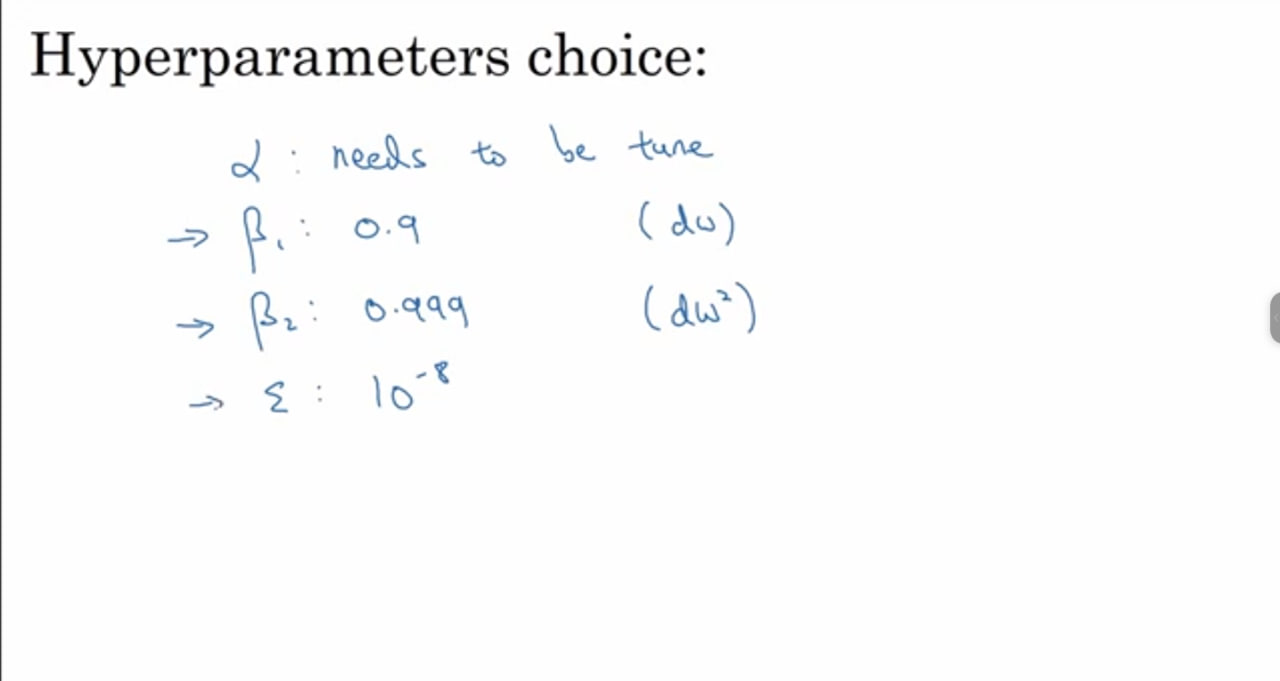 Hyperparameters choice:
α : needs to be tune
→ β₁ : 0.9 (dw)
→ β₂ : 0.999 (dw²)
→ ε : 10⁻⁸